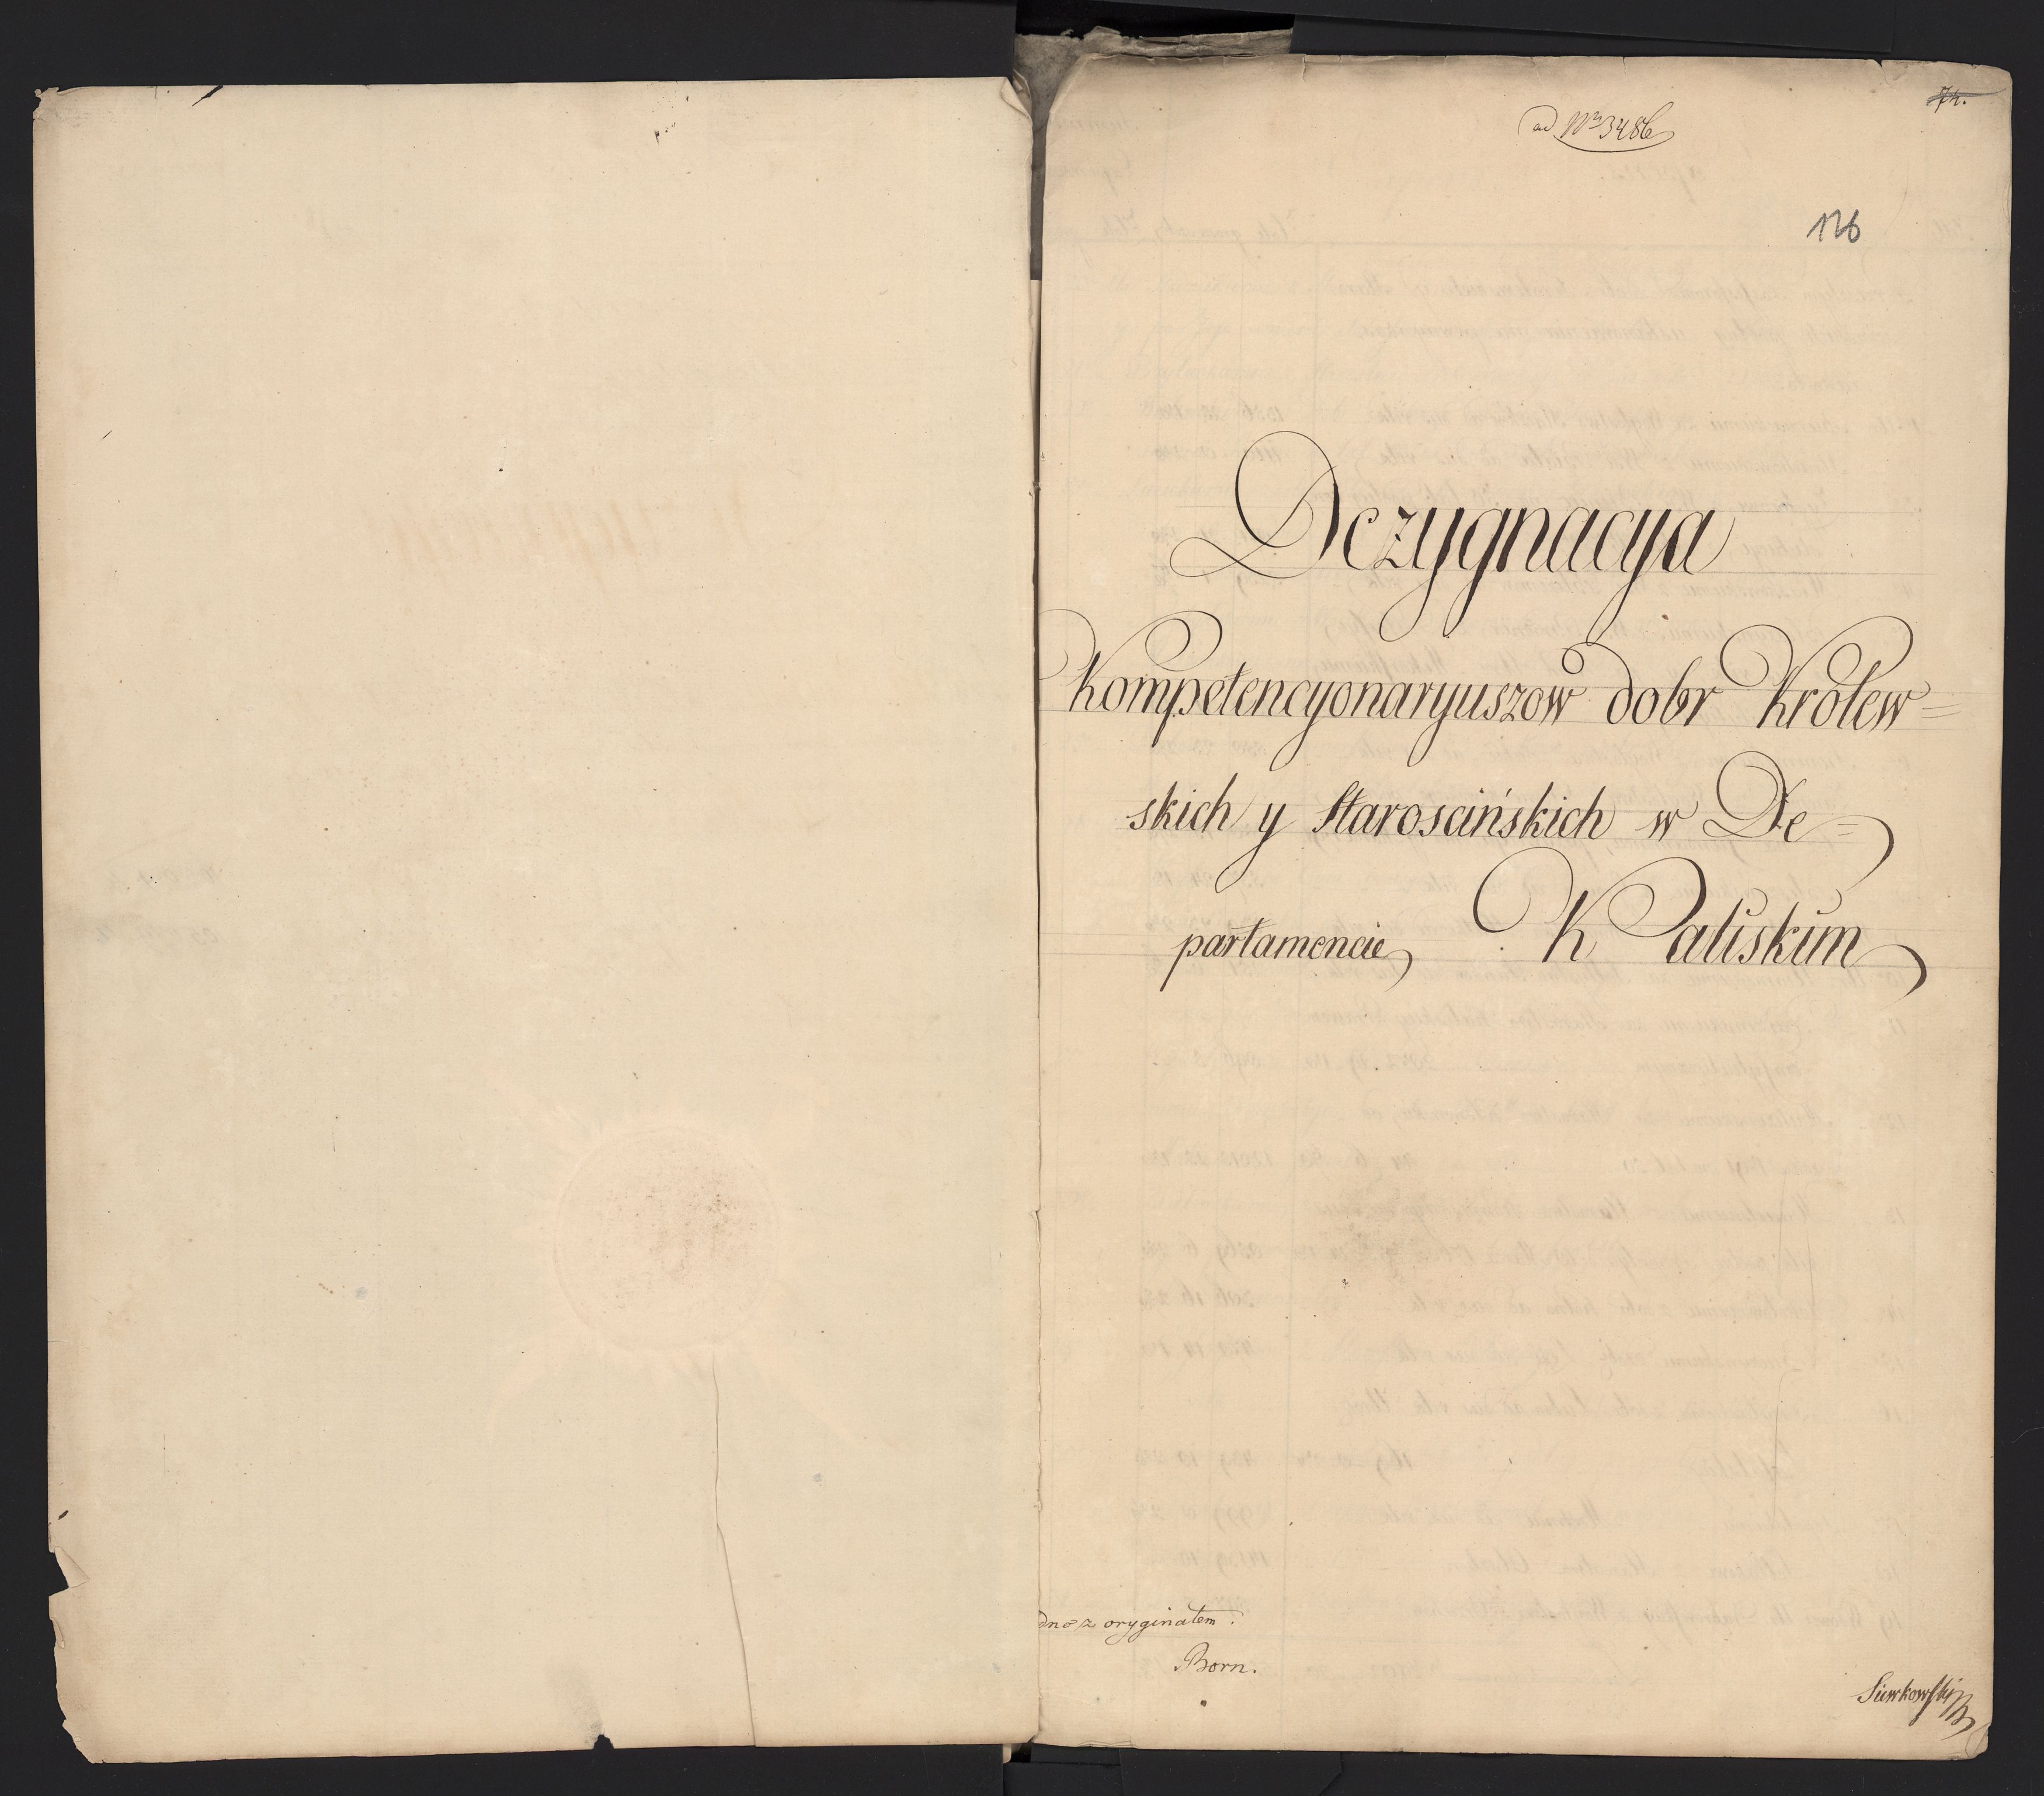 74.
ad Nrm 3486
126
Dezygnacya
Kompetencyonaryuszow dobr Krolew=
skich y Starościńskich w De=
partamencie Kaliskim
dno z oryginałem.
Born.